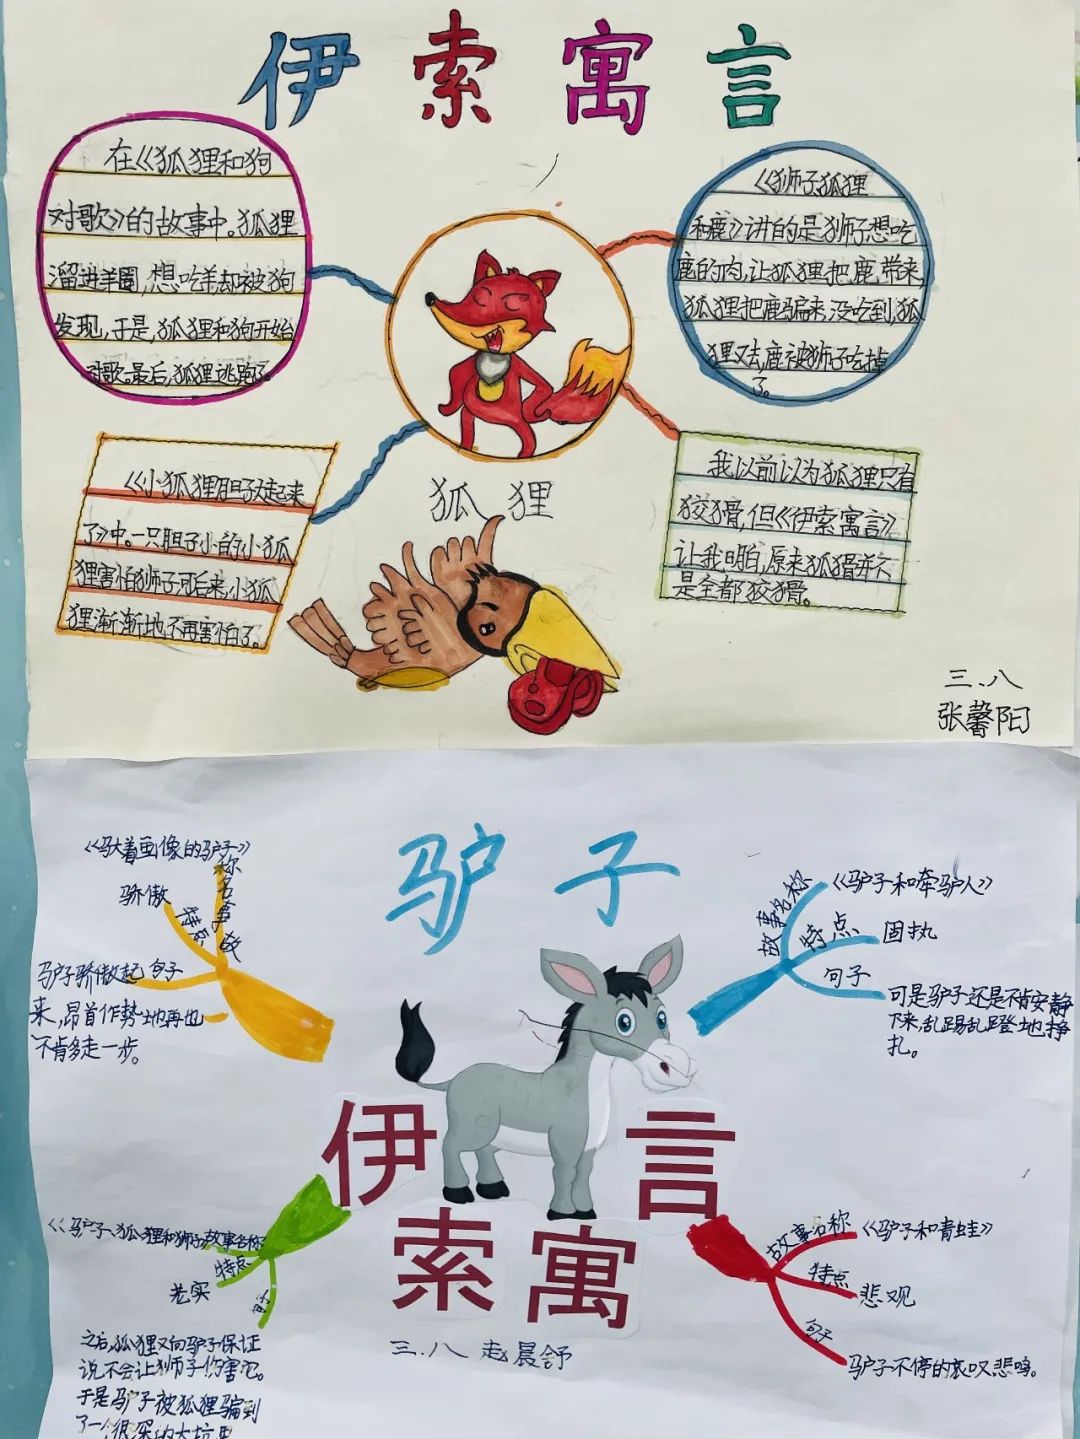 伊索寓言
在《狐狸和狗
对歌》的故事中。狐狸
溜进羊圈,想吃羊却被狗
发现,于是,狐狸和狗开始
对歌。最后,狐狸逃跑了。
《狮子狐狸
和鹿》讲的是狮子想吃
鹿的肉,让狐狸把鹿带来,
狐狸把鹿骗来,没吃到,狐
狸又去,鹿被狮子吃掉
了。
狐狸
《小狐狸胆子大起来
了》中。一只胆子小的小狐
狸害怕狮子,可后来,小狐
狸渐渐地不再害怕了。
我以前以为狐狸只有
狡猾,但《伊索寓言》
让我明白,原来狐猾并不
是全都狡猾。
三.八
张馨阳
驴子
《驮着画像的驴子》
故事名称
骄傲
特点
句子
驴子骄傲起
来,昂首作势地再也
不肯多走一步。
故事名称
《驴子和牵驴人》
特点
固执
句子
可是驴子还是不肯安静
下来,乱踢乱蹬地挣
扎。
伊索寓言
《驴子、狐狸和狮子》
故事名称
特点
老实
句子
之后,狐狸又向驴子保证
说不会让狮子伤害它。
于是驴子被狐狸骗到
了一个很深的大坑里
故事名称
《驴子和青蛙》
特点
悲观
句子
驴子不停的哀叹悲鸣。
三.八 赵晨舒